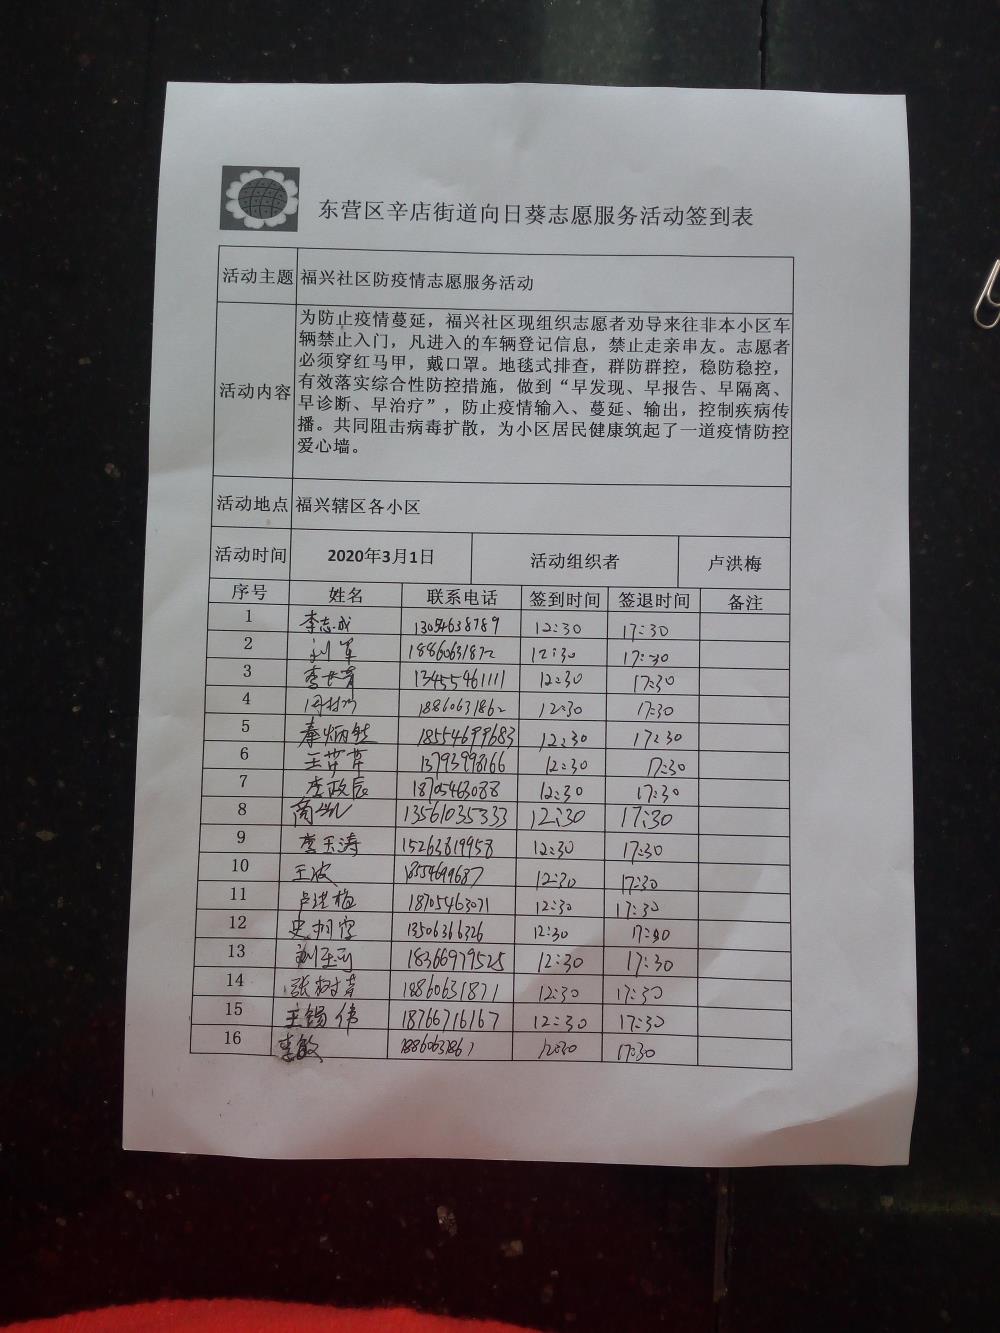 东营区辛店街道向日葵志愿服务活动签到表
活动主题 福兴社区防疫情志愿服务活动
活动内容
为防止疫情蔓延，福兴社区现组织志愿者劝导来往非本小区车
辆禁止入门，凡进入的车辆登记信息，禁止走亲串友。志愿者
必须穿红马甲，戴口罩。地毯式排查，群防群控，稳防稳控，
有效落实综合性防控措施，做到“早发现、早报告、早隔离、
早诊断、早治疗”，防止疫情输入、蔓延、输出，控制疾病传
播。共同阻击病毒扩散，为小区居民健康筑起了一道疫情防控
爱心墙。
活动地点 福兴辖区各小区
活动时间 2020年3月1日 活动组织者 卢洪梅
序号 姓名 联系电话 签到时间 签退时间 备注
1 李志成 13054638789 12:30 17:30
2 刘军 12:30 17:30
3 13455461111 12:30 17:30
4 18860631862 12:30 17:30
5 秦炳 18554699683 12:30 17:30
6 王苹苹 13793998166 12:30 17:30
7 李政辰 18705463088 12:30 17:30
8 商凯 13561035333 12:30 17:30
9 李玉涛 15263819958 12:30 17:30
10 王波 18554699687 12:30 17:30
11 卢洪梅 18705463071 12:30 17:30
12 13506366326 12:30 17:30
13 18366979525 12:30 17:30
14 张树青 18860631871 12:30 17:30
15 王锡伟 18766716167 12:30 17:30
16 李敏 12:30 17:30